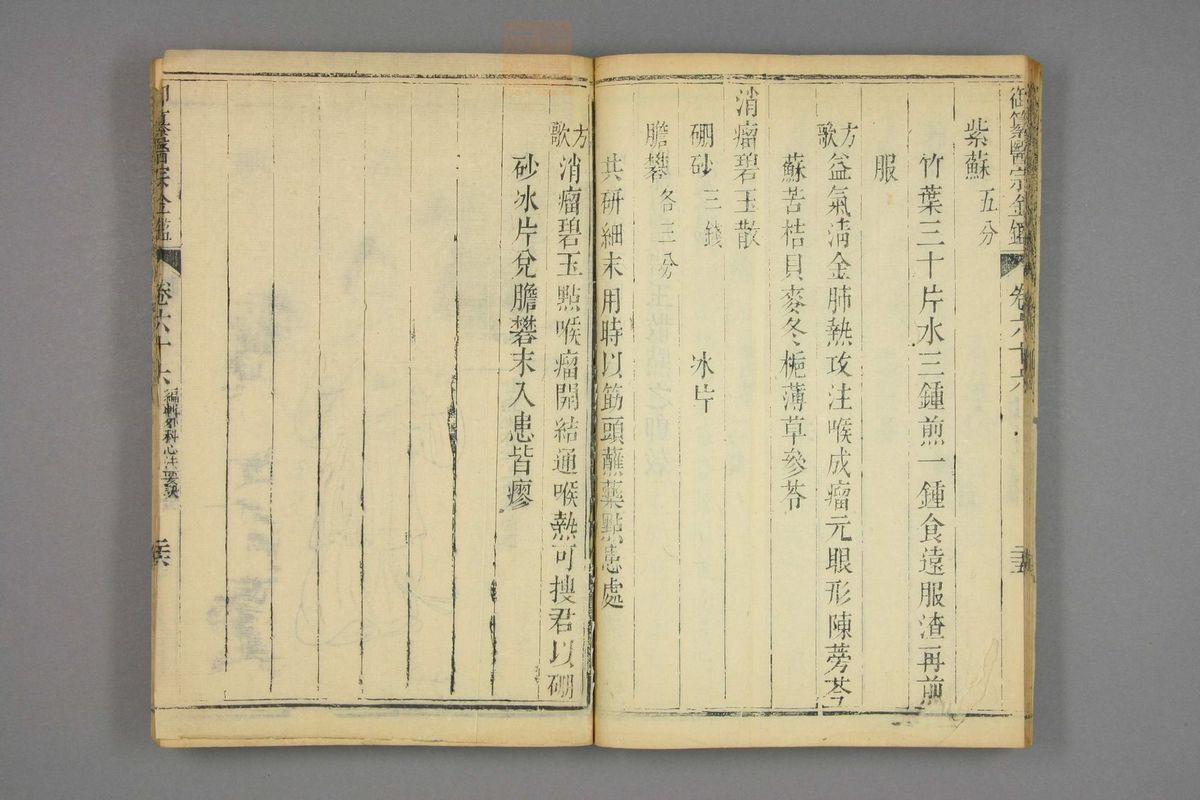 御纂醫宗金鑑 卷六十六 二十五
紫蘇五分
竹葉三十片水三鍾煎一鍾食遠服渣再煎
服
方歌 益氣淸金肺熱攻注喉成瘤元眼形陳蒡苓
蘇苦桔貝麥冬梔薄草參苓
消瘤碧玉散
硼砂三錢 冰片
膽礬各三分
共研細末用時以筋頭蘸藥點患處
方歌 消瘤碧玉點喉瘤開結通喉熱可搜君以硼
砂冰片兌膽礬末入患皆瘳
御纂醫宗金鑑 卷六十六 編輯外科心法要訣 二十六